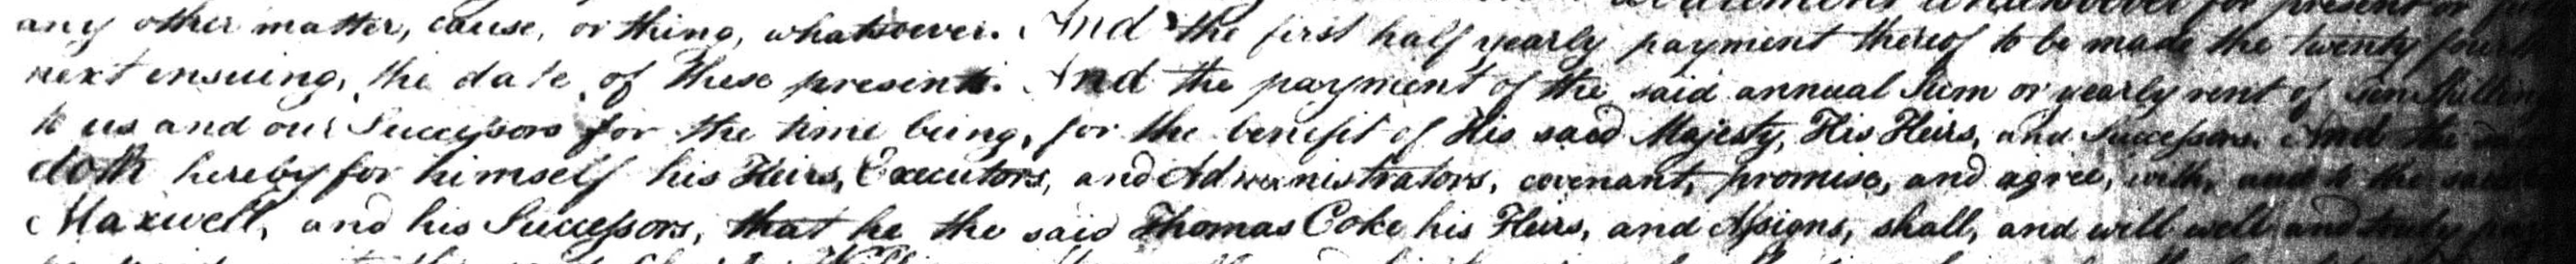 whatsoever for present or
any other matter, cause, or thing, whatsoever. And the first half yearly payment thereof to be made the twenty fourth
next ensuing, the date of these presents. And the payment of the said annual Sum or yearly rent of Shilling
to us and our Successors for the time being, for the benefit of His said Majesty, His Heirs, and Successors. And the said
doth hereby for himself his Heirs, Executors, and Administrators, covenant, promise, and agree, with, and to the said
Maxwell, and his Successors, that he the said Thomas Coke his Heirs, and Assigns, shall, and will well and truly pay